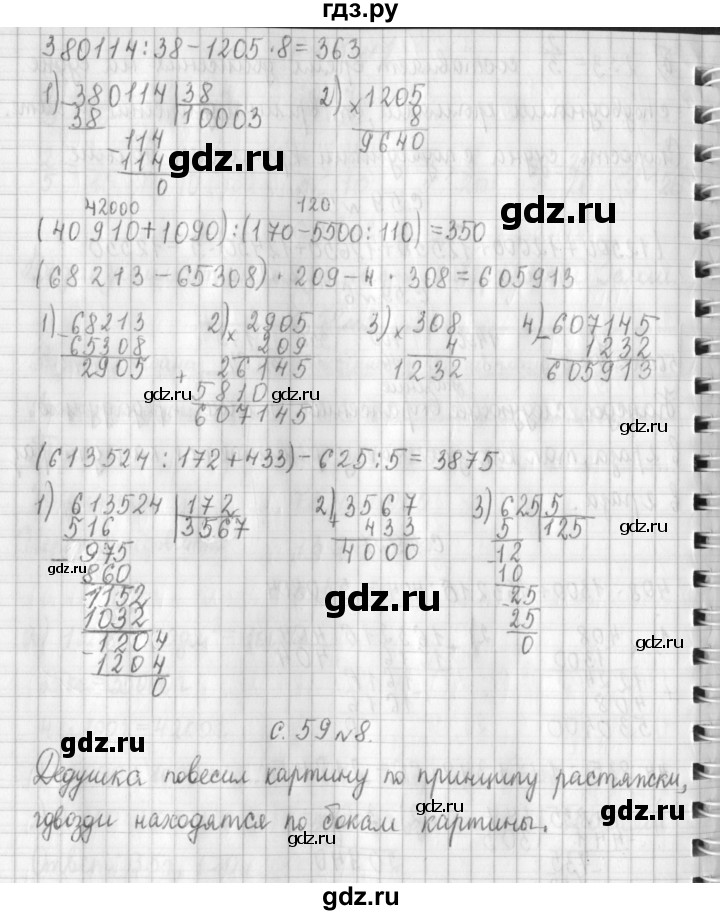 гдз.ру
380114:38-1205·8=363
1) 380114 | 38 2) × 1205
38 10003 8
- 114 9640
114
0
gdz.ru gdz.ru
42000 120
(40910+1090):(170-5500:110)=350
(68213-65308)·209-4·308=605913
1) 68213 2) × 2905 3) × 308 4) - 607145
65308 209 4 1232
2905 + 26145 1232 605913
gdz.ru 5810 gdz.ru
607145 gdz.ru
(613524:172+433)-625:5=3875
1) 613524 | 172 2) + 3567 3) 625 | 5
516 3567 433 5 125
- 975 4000 - 12
gdz.ru 860 10 gdz.ru
1152 - 25
1032 gdz.ru 25
- 1204 0
1204 gdz.ru
0
с. 59 №8.
gdz.ru
Дедушка повесил картину по принципу растяжки,
gdz.ru gdz.ru
гдвозди находятся по бокам картины.
gdz.ru
gdz.ru